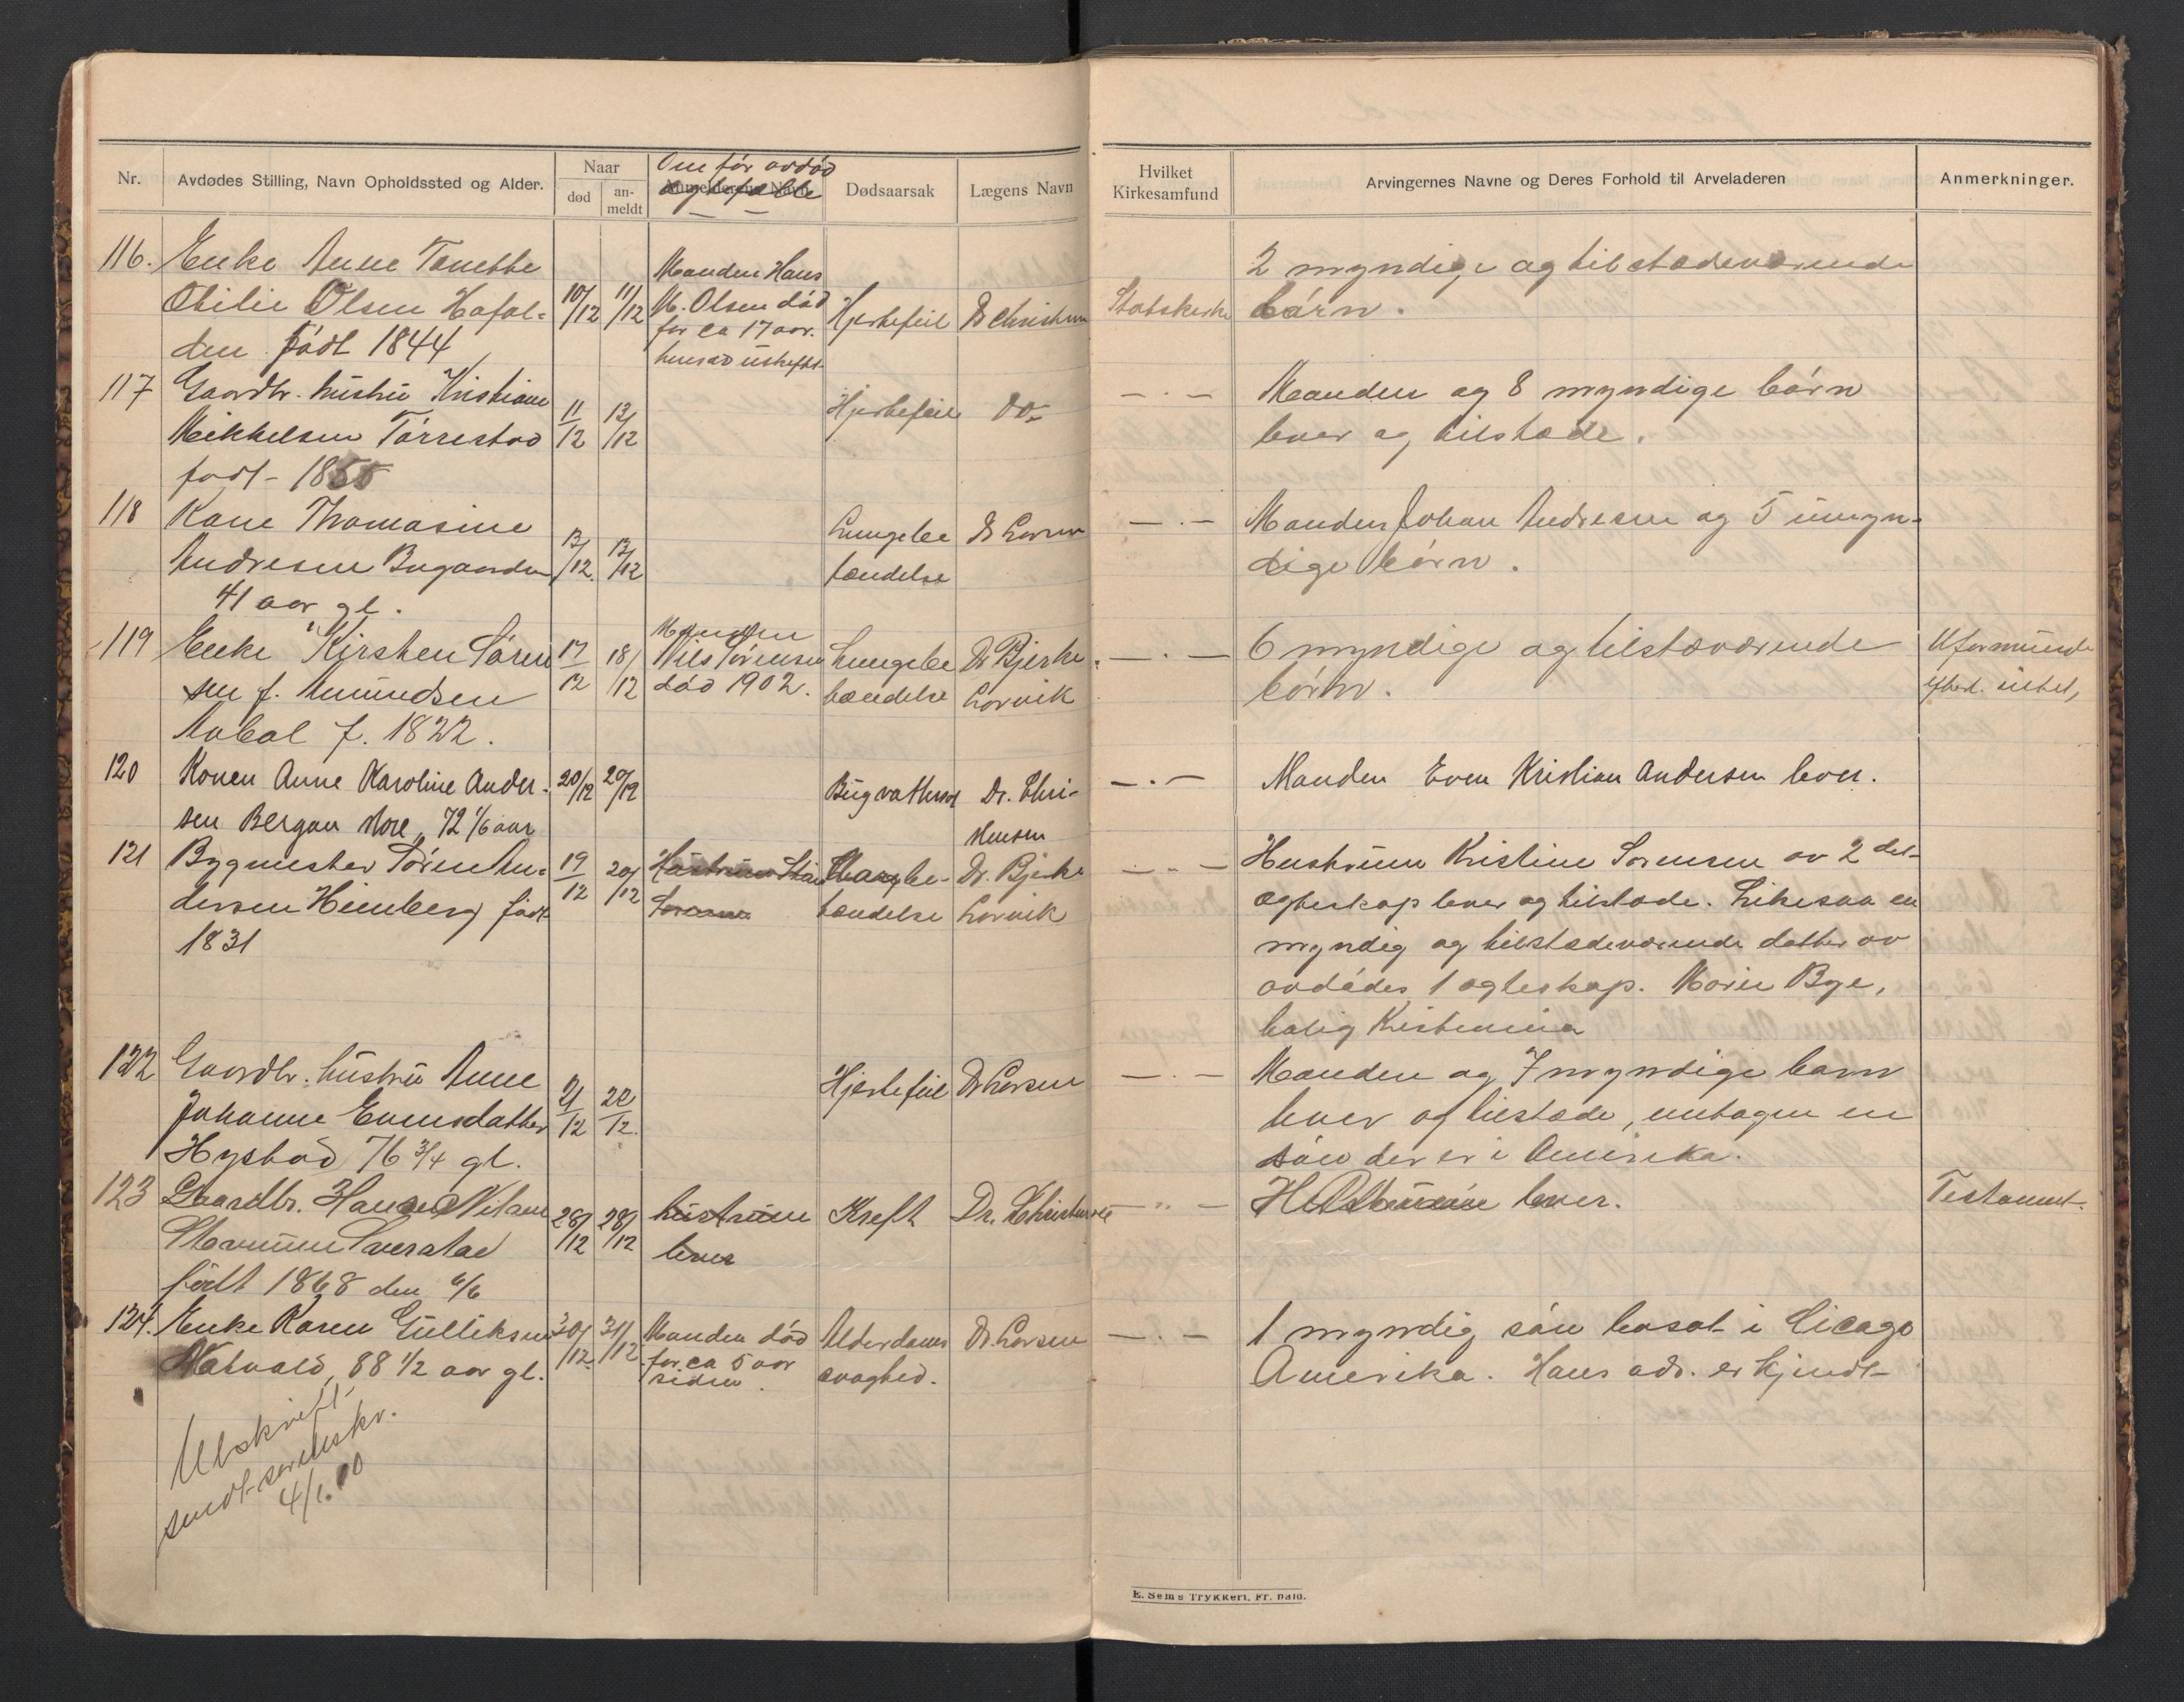 Nr.
Avdødes Stilling, Navn Opholdssted og Alder.
Naar
død
an-
meldt
Om før avdød
ægtefælle
Anmelderens Navn
Dødsaarsak
Lægens Navn
Hvilket
Kirkesamfund
Arvingernes Navne og Deres Forhold til Arveladeren
Anmerkninger.
116. Enke Anne Tonette
Otilie Olsen Hafal-
den født 1844
10/12 11/12
Manden Hans
M. Olsen død
for ca 17 aar.
Hjertefeil
Statskirke
2 myndige og tilstedeværende
børn.
117 Gaardbr. hustru Kristiane
Mikkelsen Tørrestad
født - 1855
11/12 13/12
Hjertefeil Do-
— . — Manden og 8 myndige børn
lever og tilstæde.
118 Kone Thomasine
Andresen
41 aar gl.
13/12 13/12
Lungebe
tændelse
Dr Larsen
— . — Manden Johan Andresen og 5 umyn-
dige børn.
119 Enke Kirsten Søren
sen f. Amundsen
f. 1822.
17/12 18/12
Manden
Nils Sørensen
død 1902.
Lungebe
tændelse
Dr Bjerke
Larvik
— . — 6 myndige og tilstæværende
børn.
120 Konen Anne Karoline Ander-
sen Bergan 72 1/6 aar
20/12 20/12
Dr. Chri-
stensen
— . — Manden Even Kristian Andersen lever.
121 Bygmester Søren An-
dersen Heimberg født
1831
19/12 20/12
tændelse
Dr. Bjerke
Larvik
— " — Hustruen Kristine Sørensen av 2 det
ægteskap lever og tilstæde. Likesaa en
myndig og tilstædeværende datter av
avdødes 1 ægteskap. Maren Bye,
bolig Kristiania
122 Gaardbr. hustru Anne
Johanne Evensdatter
Hystad 76 3/4 gl.
21/12 22/12.
Hjertefeil Dr Larsen
— . — Manden og 7 myndige børn
lever og tilstæde, untagen en
søn der er i Amerika.
123 Gaardbr.
født 1868 den 6/6
28/12 28/12
hustruen
lever
Kreft
— " — Hustruen lever.
Testament.
124. Enke Karen Gulliksen
88 1/2 aar gl.
30/12. 31/12
Manden død
for ca 5 aar
siden.
Alderdoms
svaghed.
Dr. Larsen
— . — 1 myndig søn bosat i Cicago
Amerika. Hans adr. er kjendt-
Utskrift
sendt sorenskr.
E. Sems Trykkeri, Fr. hald.